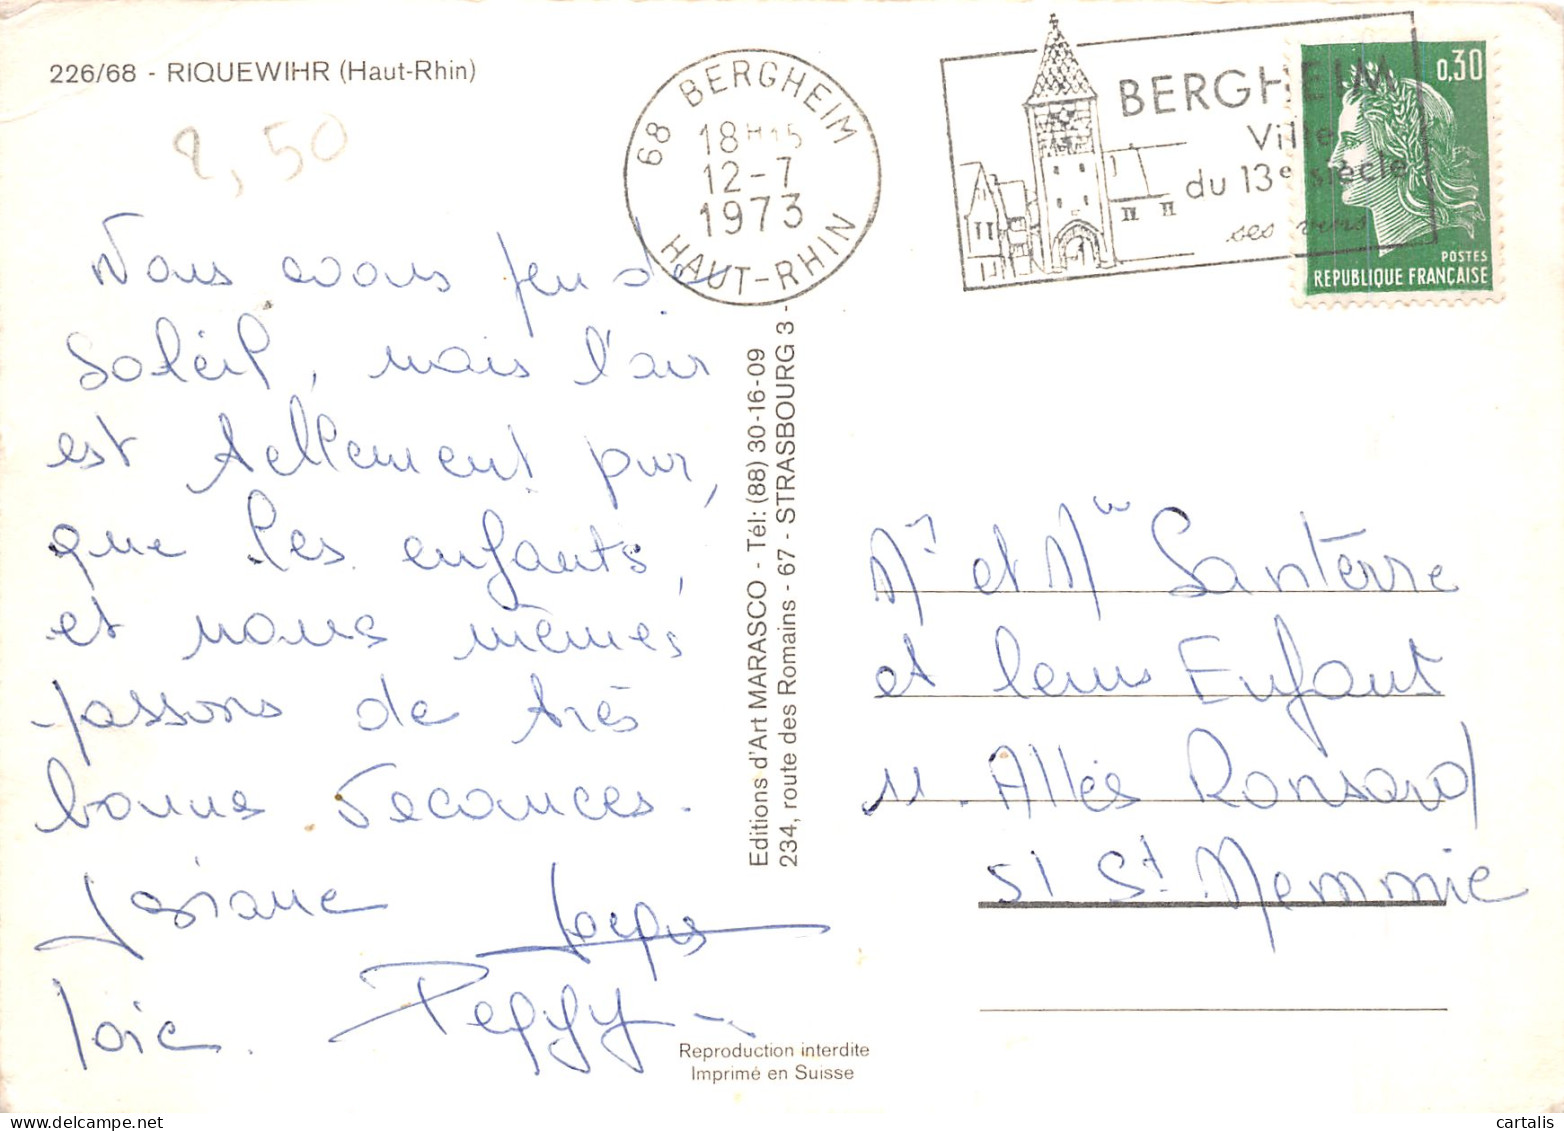 226/68 - RIQUEWIHR (Haut-Rhin)
2,50
68 BERGHEIM
18H15
12-7
1973
HAUT-RHIN
BERGHEIM
Ville
du 13e siècle
ses vins
0,30
POSTES
REPUBLIQUE FRANÇAISE
Nous avons peu de
Soleil, mais l'air
est tellement pur,
que les enfants,
et nous mêmes
passons de très
bonne vacances.
Josiane Jacques
Loïc. Peggy
Editions d'Art MARASCO - Tél: (88) 30-16-09
234, route des Romains - 67 - STRASBOURG 3 -
Mr et Mme Santerre
et leurs Enfant
11. Allés Ronsard
51 St Memmie
Reproduction interdite
Imprimé en Suisse
cartalis